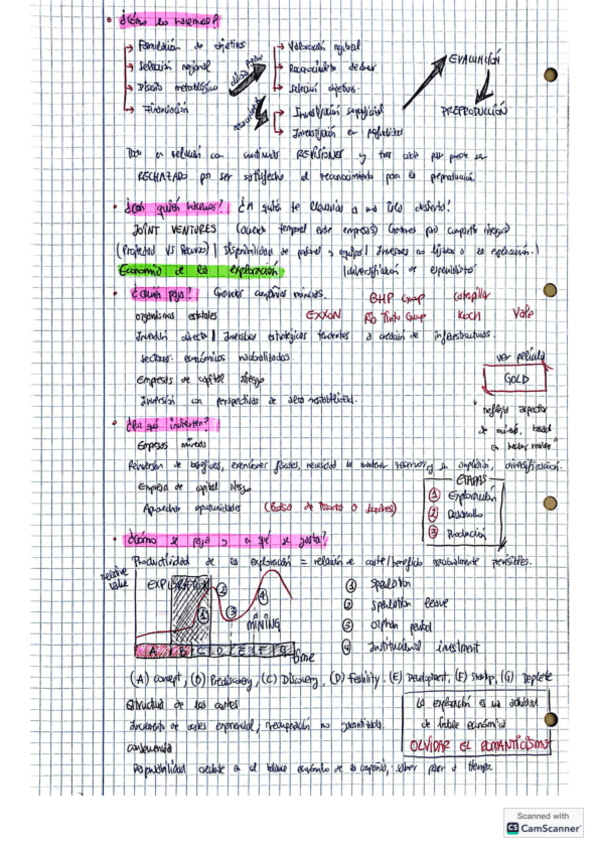 ¿Cómo lo hacemos?
Formulación de objetivos
Selección regional
Diseño metodológico
Financiación
Valoración regional
Reconocimiento
Selección objetivos
Investigación superficial
Investigación en profundidad
EVALUACIÓN
PREPRODUCCIÓN
Todo en relación con continuas REVISIONES y tras cada puede ser
RECHAZADO por ser satisfecho el reconocimiento para la preproducción
¿Con quién hacemos? ¿A quién te llevarías a una isla desierta?
JOINT VENTURES (acuerdo temporal entre empresas) para compartir riesgos)
(Propiedad VS Recurso) | Disponibilidad de y equipos | Inversores no a la exploración.)
Economía de la exploración
(diversificación de
¿Quién paga? Grandes compañías mineras.
BHP Group Caterpillar
organismos estatales EXXON Rio Tinto Group Koch Vale
Inversión directa | estratégicas a creación de infraestructuras.
sectores económicos
Empresas de capital riesgo
Inversión con perspectivas de alta rentabilidad.
ver película
GOLD
"refleja
de minería, basad
en hechos reales"
¿En qué invierten?
Empresas mineras
Reinversión de beneficios, exenciones fiscales, necesidad de mantener reservas y su ampliación, diversificación.
Empresa de capital riesgo
Aprovechar oportunidades (Bolsa de Toronto o Londres)
ETAPAS
1 Exploración
2 Desarrollo
3 Producción
¿Cómo se paga y a qué se gasta?
Productividad de la exploración = relación coste/beneficio
relative value
EXPLORATION
1 2 3 4
MINING
A B C D E F G
time
1 Speculation
2 Speculation leave
3 orphan period
4 Institutional investment
(A) concept, (B) Prediscovery, (C) Discovery, (D) Feasibility, (E) Development, (F) Startup, (G) Deplete
Estructura de los costes
Incremento de costes exponencial, recuperación no garantizada.
consecuencia
La exploración es una actividad
de económica
OLVIDAR EL ROMANTICISMO
en el balance económico de la compañía, saber parar a tiempo.
Scanned with
CS CamScanner